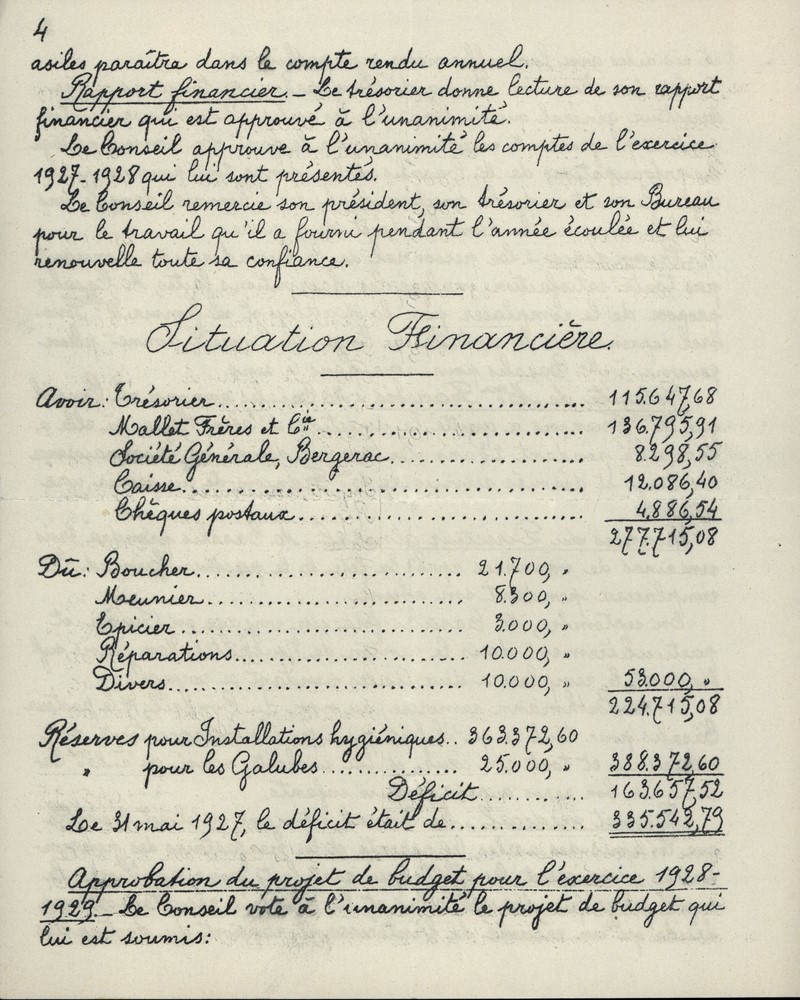 4
asiles paraîtra dans le compte rendu annuel.
Rapport financier. _ Le trésorier donne lecture de son rapport
financier qui est approuvé à l'unanimité.
Le Conseil approuve à l'unanimité les comptes de l'exercice
1927-1928 qui lui sont présentés.
Le Conseil remercie son président, son trésorier et son Bureau
pour le travail qu'il a fourni pendant l'année écoulée et lui
renouvelle toute sa confiance.
Situation Financière.
Avoir: Trésorier........................................ 115.647,68
Mallet Frères et Cie............................ 136.795,91
Société Générale, Bergerac.................... 8.298,55
Caisse........................................ 12.086,40
Chèques postaux............................. 4.886,54
277.715,08
Dû: Boucher........................... 21.700, "
Meunier........................... 8.300, "
Epicier............................. 3.000, "
Réparations....................... 10.000, "
Divers............................. 10.000, " 53.000, "
224.715,08
Réserves pour Installations hygiéniques.. 363.372,60
" pour les Galubes.............. 25.000, " 388.372,60
Déficit.......... 163.657,52
Le 31 mai 1927, le déficit était de............. 335.542,79
Approbation du projet de budget pour l'exercice 1928-
1929. _ Le Conseil vote à l'unanimité le projet de budget qui
lui est soumis: